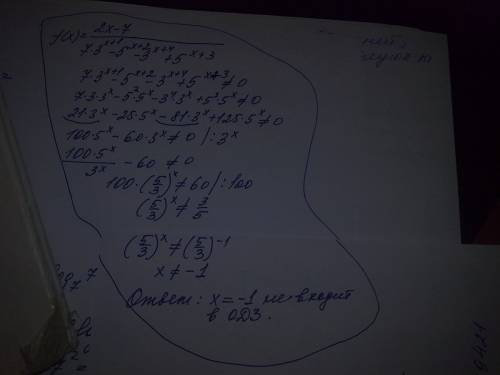 f(x) = 2x-7 / 7·3^(x+1) - 5^(x+2) - 3^(x+4) + 5^(x+3)
7·3^(x+1) - 5^(x+2) - 3^(x+4) + 5^(x+3) ≠ 0
7·3·3^x - 5²·5^x - 3⁴·3^x + 5³·5^x ≠ 0
21·3^x - 25·5^x - 81·3^x + 125·5^x ≠ 0
100·5^x - 60·3^x ≠ 0 |: 3^x
100·5^x / 3^x - 60 ≠ 0
100·(5/3)^x ≠ 60 |: 100
(5/3)^x ≠ 3/5
(5/3)^x ≠ (5/3)^(-1)
x ≠ -1
Ответ: x = -1 не входит
в ОДЗ.